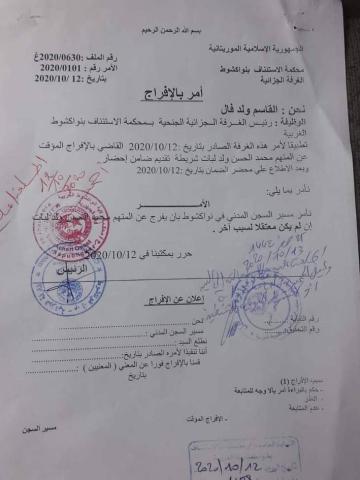 بسم الله الرحمن الرحيم
الجمهورية الإسلامية الموريتانية
محكمة الاستئناف بنواكشوط
الغرفة الجزائية
رقم الملف :2020/0630غ
الأمر رقم : 2020/0101
بتاريخ :12 /2020/10
أمر بالإفراج
نحن : القاسم ولد فال
الوظيفة : رئيس الغرفة الجزائية الجنحية بمحكمة الاستئناف بنواكشوط
الغربية
تطبيقا لأمر هذه الغرفة الصادر بتاريخ :2020/10/12 القاضي بالإفراج المؤقت
عن المتهم محمد الحسن ولد لبات شريطة تقديم ضامن إحضار
وبعد الاطلاع على محضر الضمان بتاريخ :2020/10/12
نأمر بما يلي:
الأمر
نأمر مسير السجن المدني في نواكشوط بأن يفرج عن المتهم محمد الحسن ولد لبات
إن لم يكن معتقلا لسبب آخر .
حرر بمكتبنا في 2020/10/12
الرئيس
إعلان عن الإفراج
نحن
مسير السجن المدني :
نطلع السيد :
أننا تنفيذا لأمره الصادر بتاريخ:
قمنا بالإفراج فورا عن المعني ( المعنيين )
بتاريخ
رقم النيابة
رقم التحقيق
سبب الإفراج (1)
- حكم بالبراءة أمر بألا وجه للمتابعة
- العذر
- عدم المتابعة
- الإفراج المؤقت
مسير السجن
2020/10/13
2020/10/12